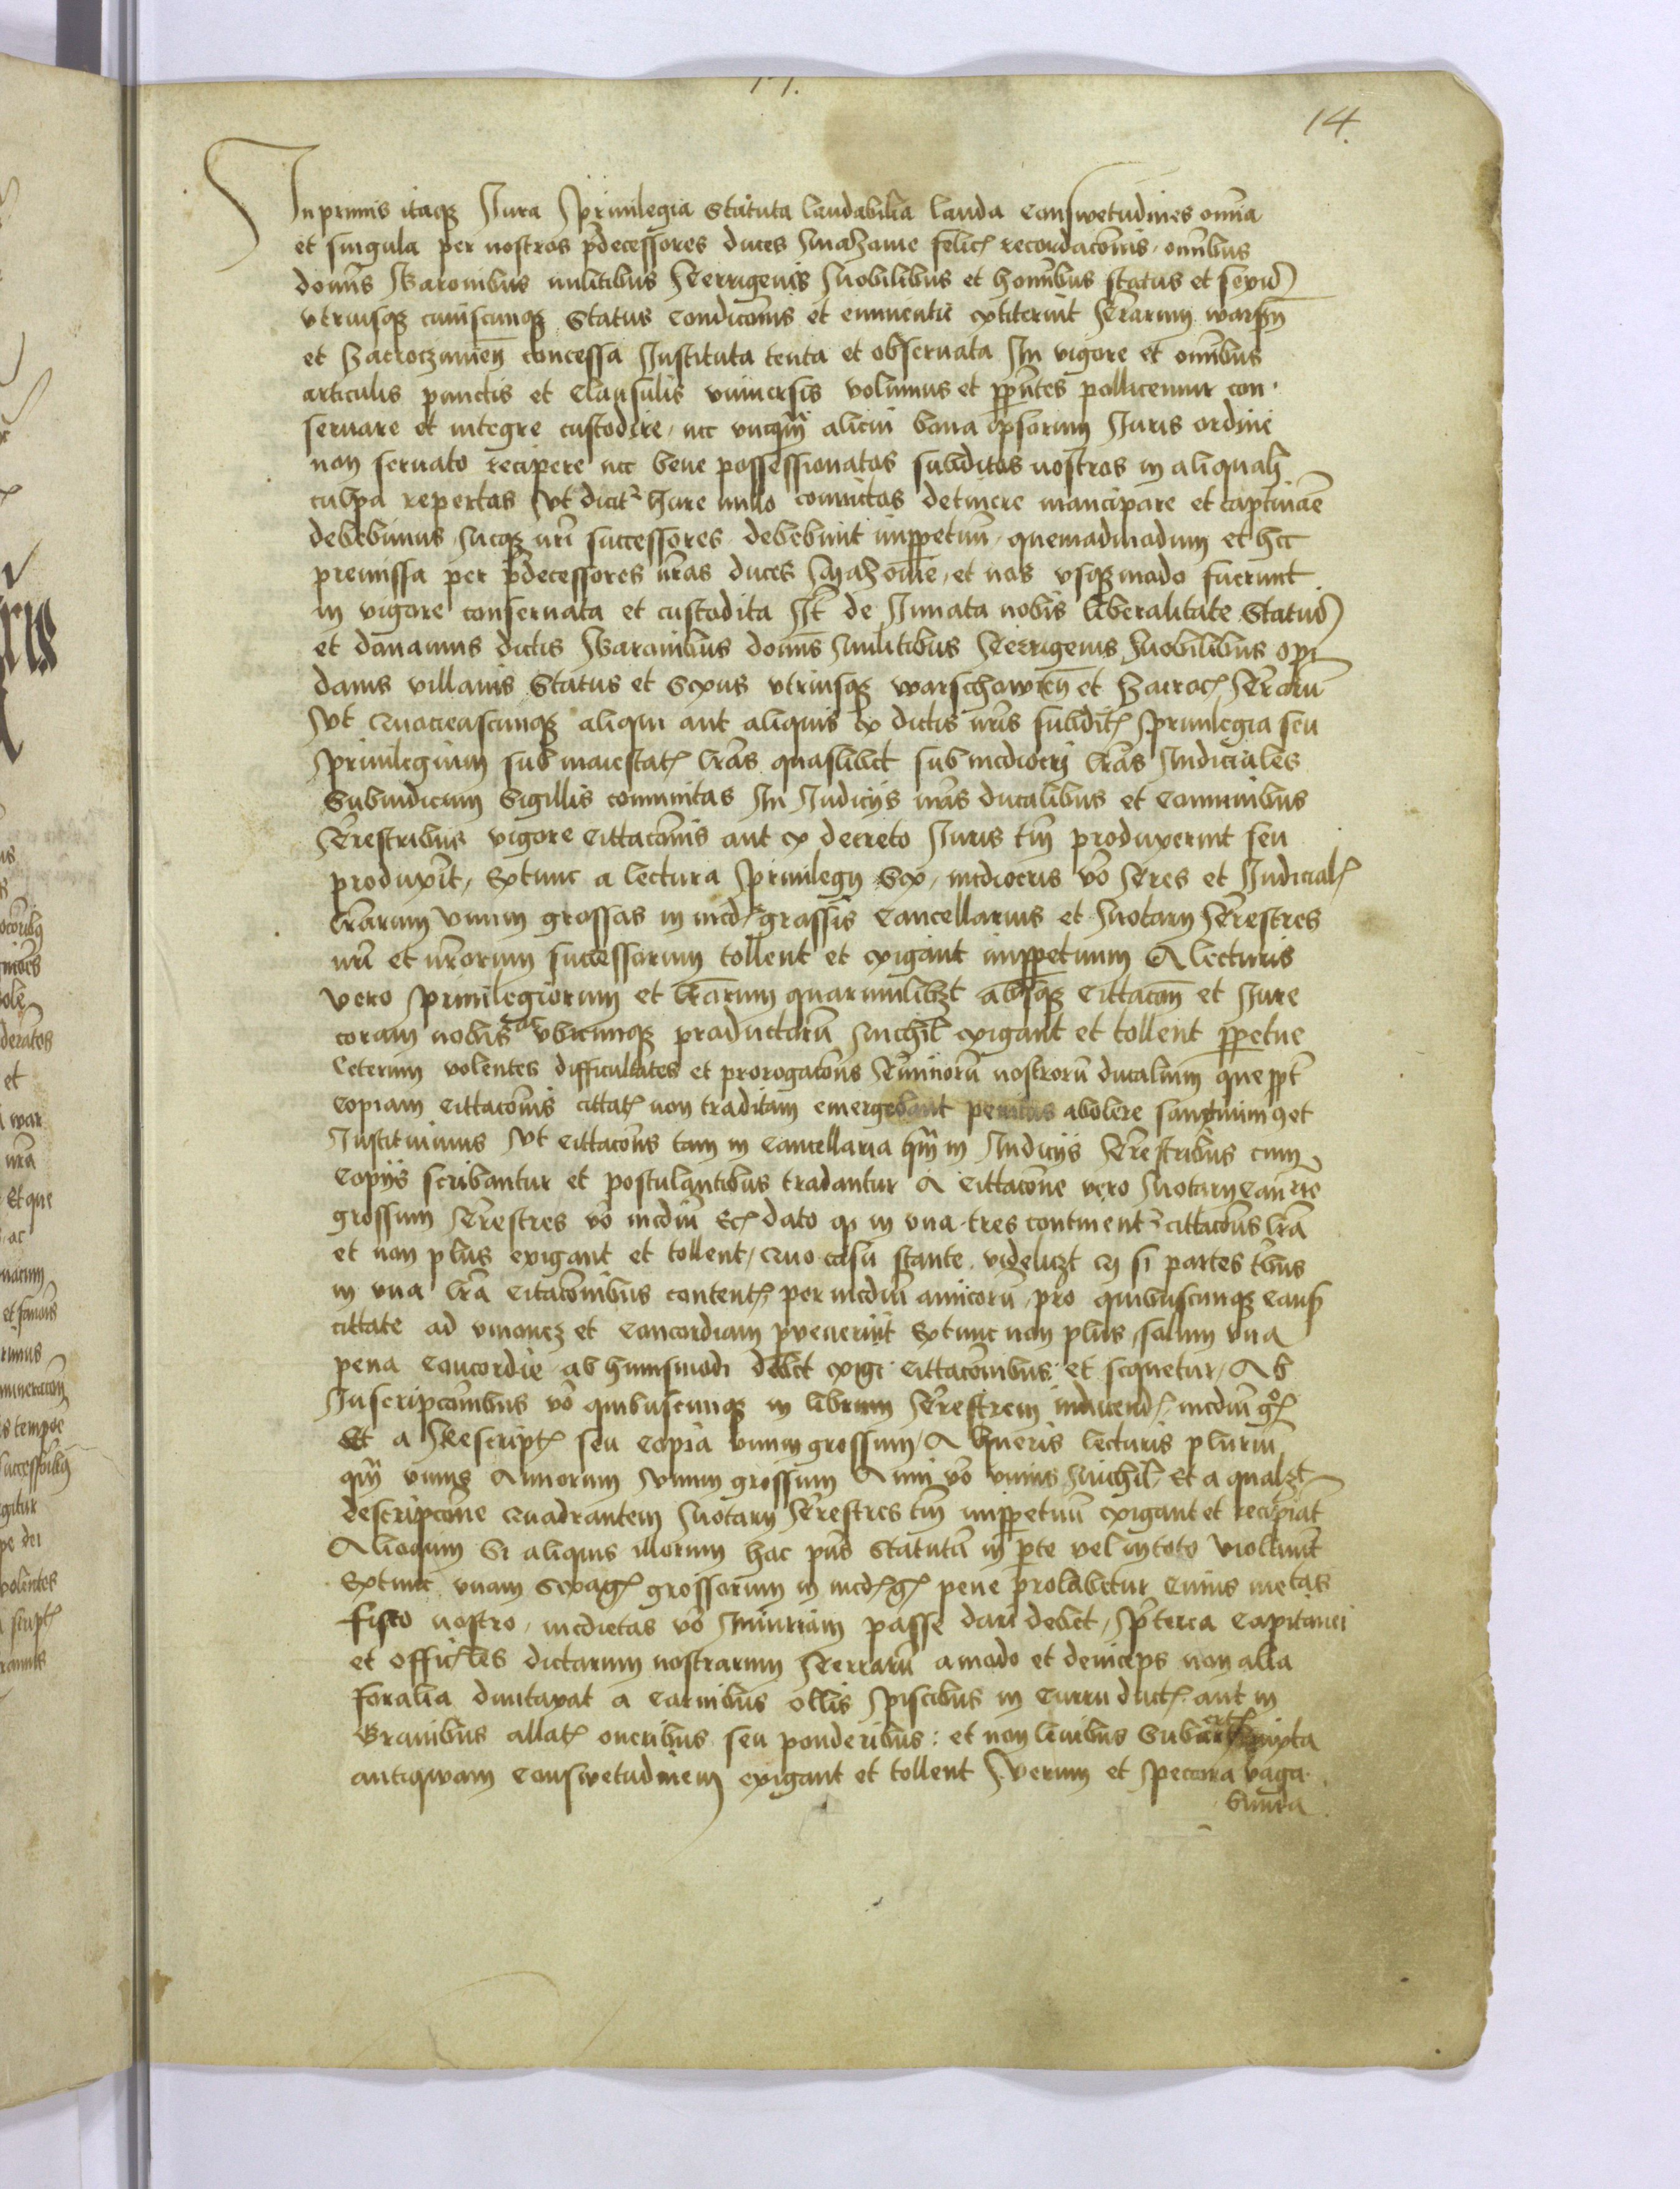 14
Inprimis itaqꝫ Jura Priuilegia Statuta laudabilia lauda Conswetudines omĩa
et singula per nostros p̃decessores duces Mazouie felicꝭ recordacõnis omĩbus
domĩs Baronibus militibus Terrigenis Nobilibus et hoĩnibus status et sexus
vtriusqꝫ cuiuscunqꝫ Status Condicõnis et eminentie extiterint Terrarum warschn̄
et Zacroczimieñ concessa Instituta tenta et obseruata In vigore et omĩbus
articulis punctis et Clausulis vniuersis volumus et pp̃ntes pollicemur con
seruare et integre custodire nec vnq̃m alicui bona ipsorum Juris ordine
non seruato recipere nec bene possessionatos subditos nostros in aliquali
culpa repertos vt dicitꝛ Jure nullo conuictos detinere mancipare et captiuare
debebimus Necqꝫ nrĩ successores debebunt inpp̃etuũ quemadmodum et hec
premissa per p̃decessores nr̃os duces Mazouie et nos vsqꝫ modo fuerunt
in vigore conseruata et custodita Itẽ de Innata nobis liberalitate Statuĩ
et donamus dictis Baronibus domĩs Militibus Terrigenis Nobilibus opi
danis villanis Status et Sexus vtriusqꝫ warschowieñ et Zacrocꝭ Terrarũ
vt Quocienscunqꝫ aliqui aut aliquis ex dictis nr̃is subditꝭ Priuilegia seu
Priuilegium sub maiestatꝭ lr̃as quaslibet sub mediocri lr̃as Judiciales
Subiudicum Sigillis communitas In Judicijs nr̃is ducalibus et Communibus
Terrestribus vigore Cittacõnis aut ex decreto Juris tm̃ produxerint seu
produxit, Extunc a lectura Priuilegij Sex, mediocris vo Tres et Judicialꝭ
lr̃arum Vnum grossos in medꝭ grossis Cancellarius et Notarij Terrestres
nrĩ et nr̃orum successorum tollent et exigant inpp̃etuum A lecturis
vero Priuilegiorum et lr̃arum quarumlibꝫt absqꝫ Cittacõn et Jure
coram nobis ac vbicunqꝫ productorũ Nichil exigant et tollent pp̃etue
Ceterum volentes difficultates et prorogacõns Terminorũ nostrorũ ducalium que ppt̃
copiam Cittacõnis cittatꝭ non traditam emergebant penitus abolere sanximus et
Instituimus vt Cittacõns tam in Cancellaria q̃m in Judicijs Terrestribus cum
Copijs scribantur et postulantibus tradantur A Cittacõne vero Notarij Canrie
grossum Terrestres vo mediũ Ecꝭ dato qꝫ in vna tres continentꝛ cittacõns lr̃a
et non plus exigant et tollent, Quo casu stante videlicꝫt qꝫ si partes tribus
in vna lr̃a Citacõnibus contentꝭ per mediũ amicorũ pro quibuscunqꝫ Caus
cittate ad vnionez et Concordiam peruenerint Extunc non plus solum vna
pena Concordie ab huiusmodi debet exigi Cittacõnibus et sequetur, Ab
Inscripcõnibus vo quibuscunqꝫ in librum Terrestrem inducendꝭ mediũ gꝭ
Et a Rescriptꝭ seu Copia vnum grossum, A hueris lecturis plurium
q̃m vnius Annorum vnum grossum Anni vo vnius Nichil Et a qualꝫt
descripcõne Quadrantem Notarij Terrestres tm̃ inpp̃etuũ exigant et recipiãt
Alioquin Si aliquis illorum hac pñs Statutũ in parte vel in toto violauerit
Extunc vnam Sexagꝭ grossorum in medꝭ gꝭ pene prolabetur cuius metas
fisco nostro, medietas vo Iniuriam passe dari debet, Preterea Capitanei
et officiales dictarum nostrarum Terrarũ amodo et deinceps non alia
foralia duntaxat a Carnibus ollis Piscibus in Curru ductꝭ aut in
Grauibus allatꝭ oneribus seu ponderibus et non leuibus Sub iuxta
antiqwam Conswetudinem exigant et tollent Iterum et Pecora vaga
bunda